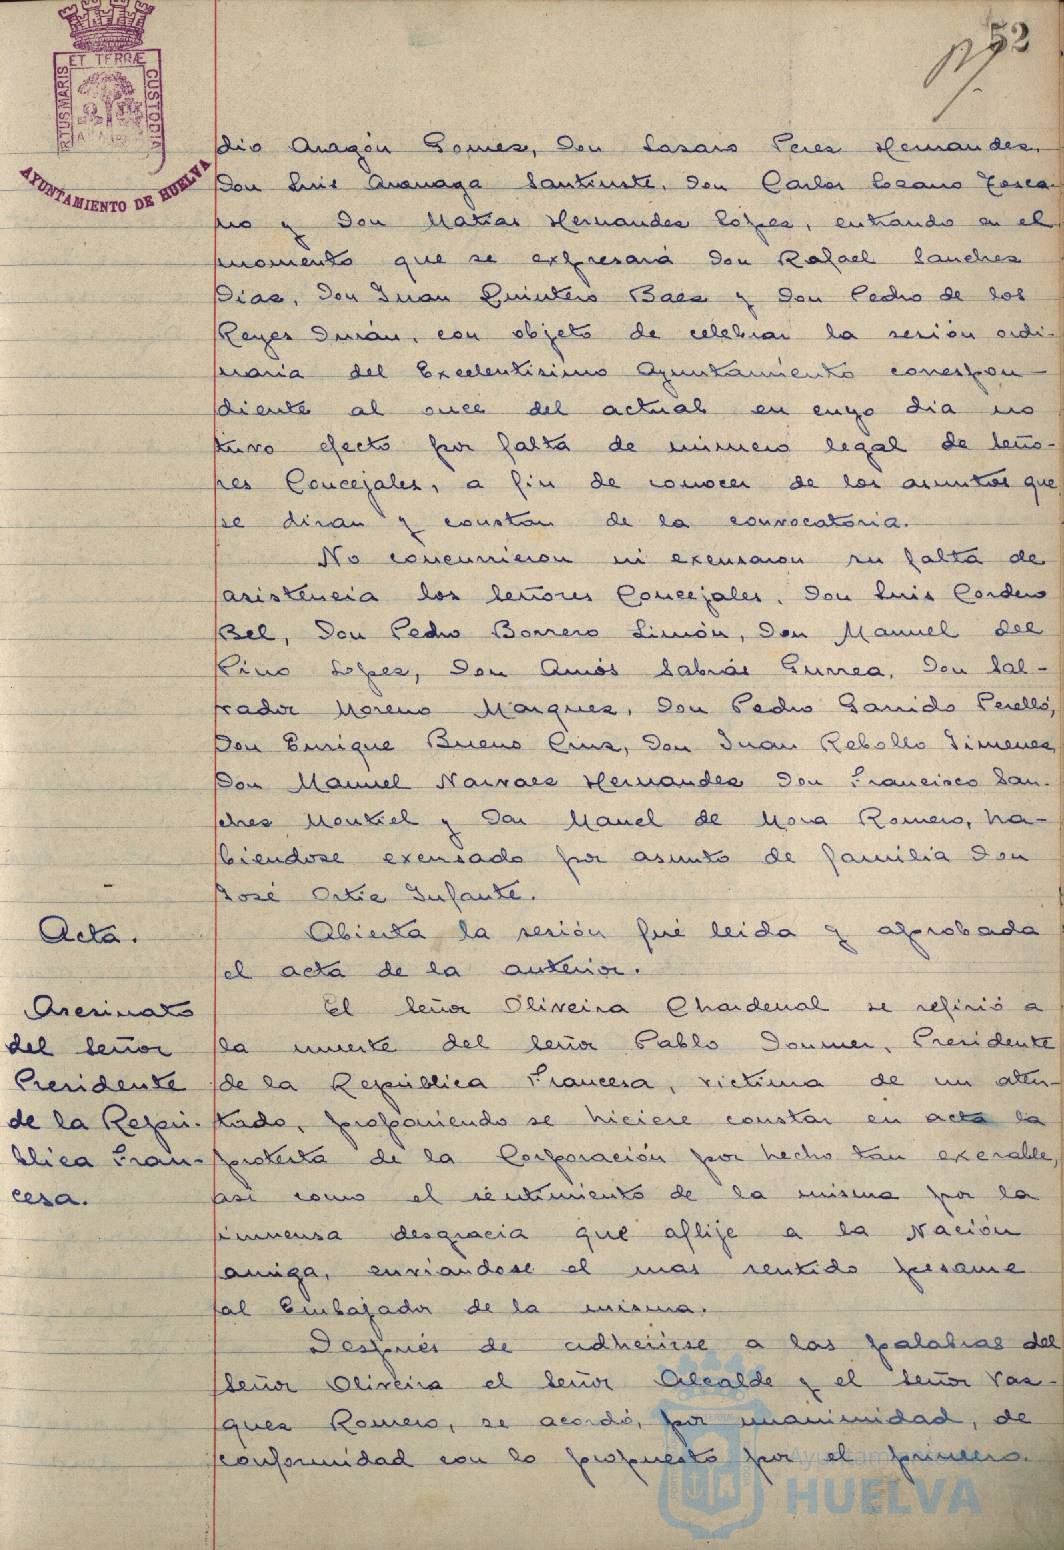 52
PORTUS MARIS ET TERRÆ CUSTODIA
AYUNTAMIENTO DE HUELVA
dio Aragón Gomez, Don Lazaro Perez Hernandez,
Don Luis Aramaga Santiuste, Don Carlos Lozano Tosca-
no y Don Matias Hernandez Lopez, entrando en el
momento que se expresará Don Rafael Sanchez
Diaz, Don Juan Quintero Baez y Don Pedro de los
Reyes Durán, con objeto de celebrar la sesión ordi-
naria del Excelentisimo Ayuntamiento correspon-
diente al once del actual en cuyo dia no
tuvo efecto por falta de número legal de Seño-
res Concejales, a fin de conocer de los asuntos que
se diran y constan de la convocatoria.
No concurrieron ni excusaron su falta de
asistencia los Señores Concejales, Don Luis Cordero
Bel, Don Pedro Borrero Limón, Don Manuel del
Pino Lopez, Don Amós Sabrás Gurrea, Don Sal-
vador Moreno Marquez, Don Pedro Garrido Perelló,
Don Enrique Bueno Cruz, Don Juan Rebollo Jimenez,
Don Manuel Narvaez Hernandez Don Francisco San-
chez Montiel y Don Manel de Mora Romero, ha-
biendose excusado por asunto de familia Don
José Ortiz Infante.
Acta.
Abierta la sesión fué leida y aprobada
el acta de la anterior.
Asesinato
del Señor
Presidente
de la Repú-
blica Fran-
cesa.
El Señor Oliveira Chardenal se refirió a
la muerte del Señor Pablo Doumer, Presidente
de la República Francesa, victima de un aten-
tado, proponiendo se hiciere constar en acta la
protesta de la Corporación por hecho tan execrable,
asi como el sentimiento de la misma por la
inmensa desgracia que aflije a la Nación
amiga, enviandose el mas sentido pesame
al Embajador de la misma.
Después de adherirse a las palabras del
Señor Oliveira el Señor Alcalde y el Señor Vaz-
quez Romero, se acordó, por unanimidad, de
conformidad con lo propuesto por el primero.
Ayuntamiento
HUELVA